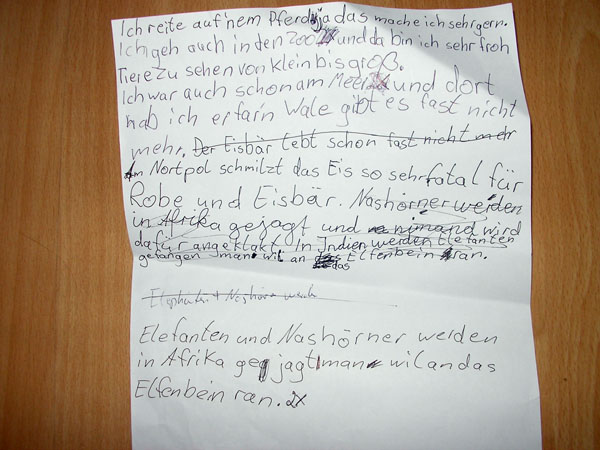 Ich reite auf'nem Pferd ja das mache ich sehr gern.
Ich geh auch in den Zoo 2x und da bin ich sehr froh
Tiere zu sehen von klein bis groß.
Ich war auch schon am Meer und dort
hab ich erfarn Wale gibt es fast nicht
mehr. Der Eisbär lebt schon fast nicht mehr
Am Nortpol schmilzt das Eis so sehr fatal für
Robe und Eisbär. Nashörner werden
in Afrika gejagt und nimand wird
dafür angeklakt. In Indien werden Elefanten
gefangen man wil an das Elfenbein ran.
das
Nashörner
Elefanten und Nashörner werden
in Afrika gejagt man wil an das
Elfenbein ran. 2x